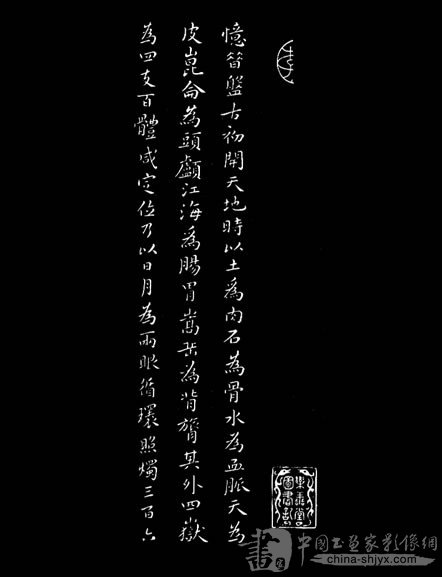 憶昔盤古初開天地時以土為肉石為骨水為血脈天為
皮崑侖為頭顱江海為腸胃嵩岳為背膂其外四嶽
為四支百體咸定位乃以日月為兩眼循環照燭三百六
中國书画家影像網
china-shjyx.com